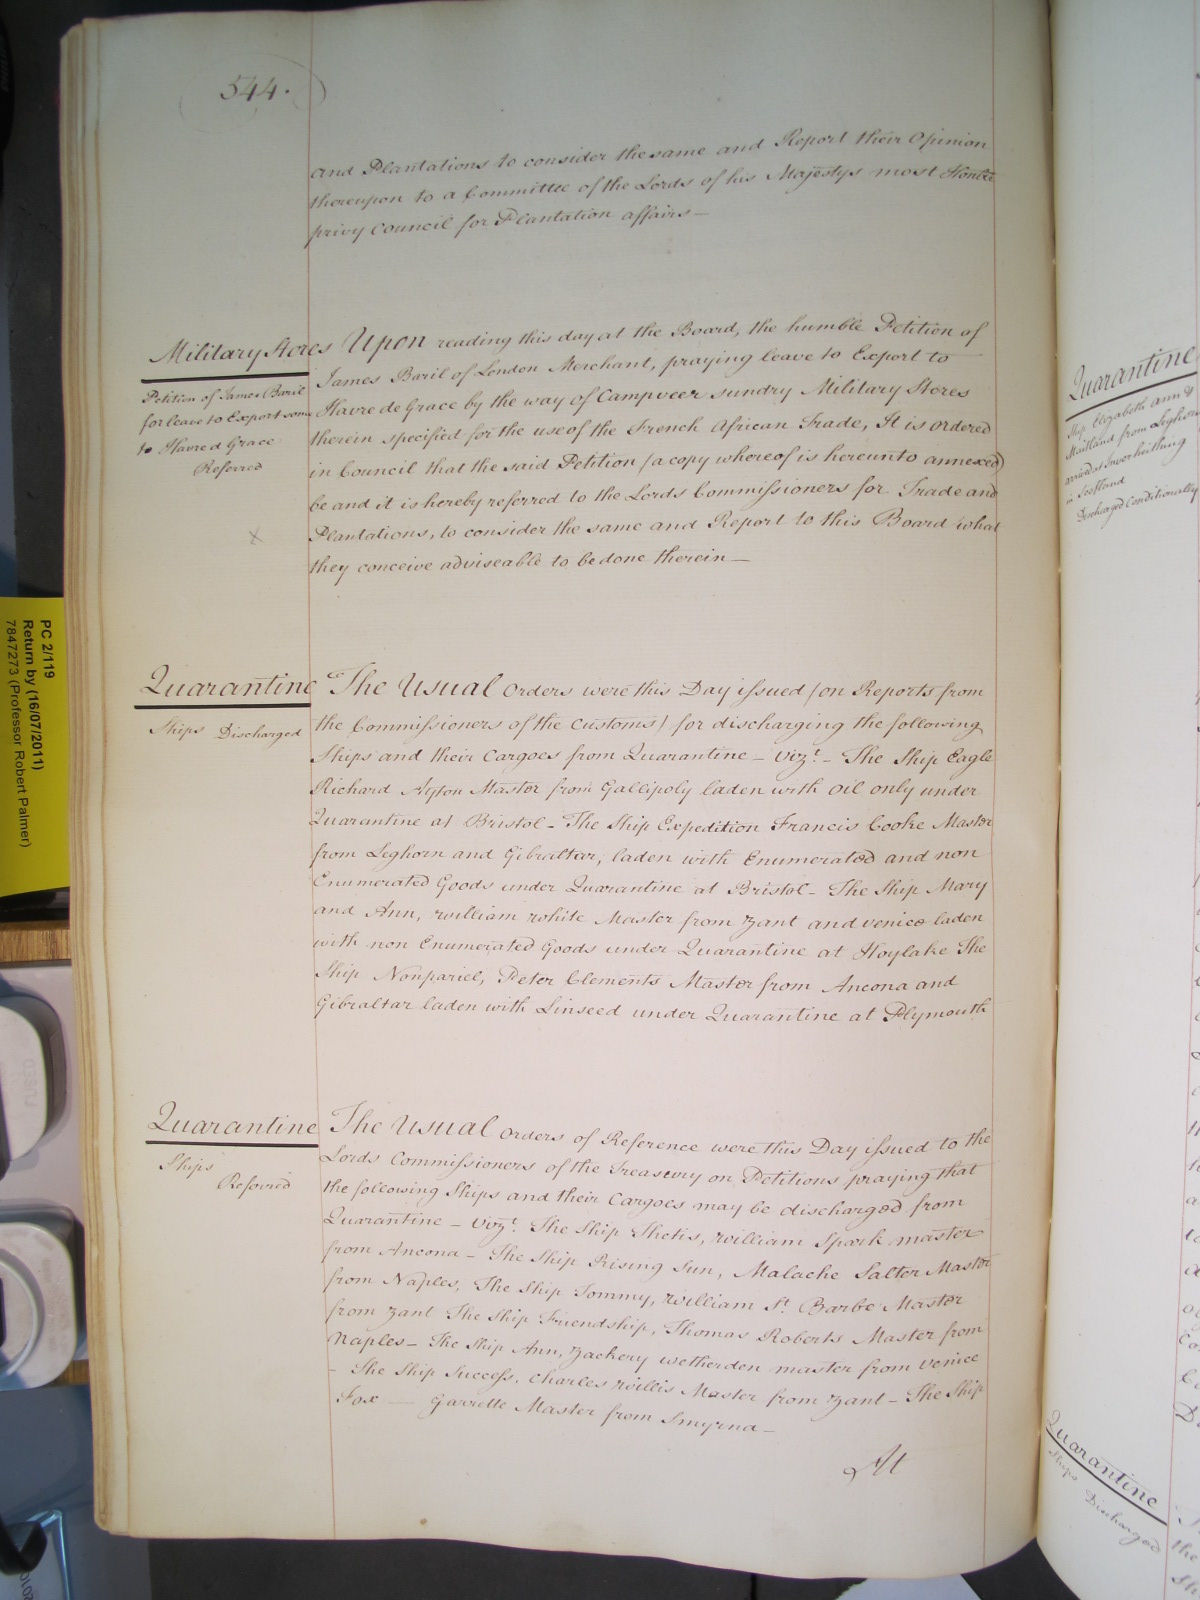 544.
and Plantations to consider the same and Report their Opinion
thereupon to a Committee of the Lords of his Majestys most Honble
privy Council for Plantation affairs —
Military Stores
Petition of James Baril
for leave to Export some
to Havre d Grace
Referred
Upon reading this day at the Board, the humble Petition of
James Baril of London Merchant, praying leave to Export to
Havre de Grace by the way of Campveer sundry Military Stores
therein specified for the use of the French African Trade, It is ordered
in Council that the said Petition (a copy whereof is hereunto annexed)
be and it is hereby referred to the Lords Commissioners for Trade and
Plantations, to consider the same and Report to this Board what
they conceive adviseable to be done therein —
Quarantine
Ships Discharged
The Usual Orders were this Day issued (on Reports from
the Commissioners of the Customs) for discharging the following
Ships and their Cargoes from Quarantine — Vizt. — The Ship Eagle
Richard Ayton Master from Gallipoly laden with Oil only under
Quarantine at Bristol — The Ship Expedition Francis Cooke Master
from Leghorn and Gibraltar, laden with Enumerated and non
Enumerated Goods under Quarantine at Bristol — The Ship Mary
and Ann, William White Master from Zant and Venice laden
with non Enumerated Goods under Quarantine at Hoylake The
Ship Nonpariel, Peter Clements Master from Ancona and
Gibraltar laden with Linseed under Quarantine at Plymouth
Quarantine
Ships
Referred
The Usual Orders of Reference were this Day issued to the
Lords Commissioners of the Treasury on Petitions praying that
the following Ships and their Cargoes may be discharged from
Quarantine — Vizt. The Ship Thetis, William Spark master
from Ancona — The Ship Rising Sun, Malache Salter Master
from Naples, The Ship Tommy, William St. Barbe Master
from Zant The Ship Friendship, Thomas Roberts Master from
Naples — The Ship Ann, Zackery Wetherden master from Venice
— The Ship Success, Charles Willis Master from Zant — The Ship
Fox — Garrette Master from Smyrna —
At
PC 2/119
Return by (16/07/2011)
7847273 (Professor Robert Palmer)
Quarantine
Ship Elizabeth Ann &
Maitland from Leghorn
arrived at Inverkeithing
in Scotland
Discharged Conditionally
Quarantine
Ships
Discharged